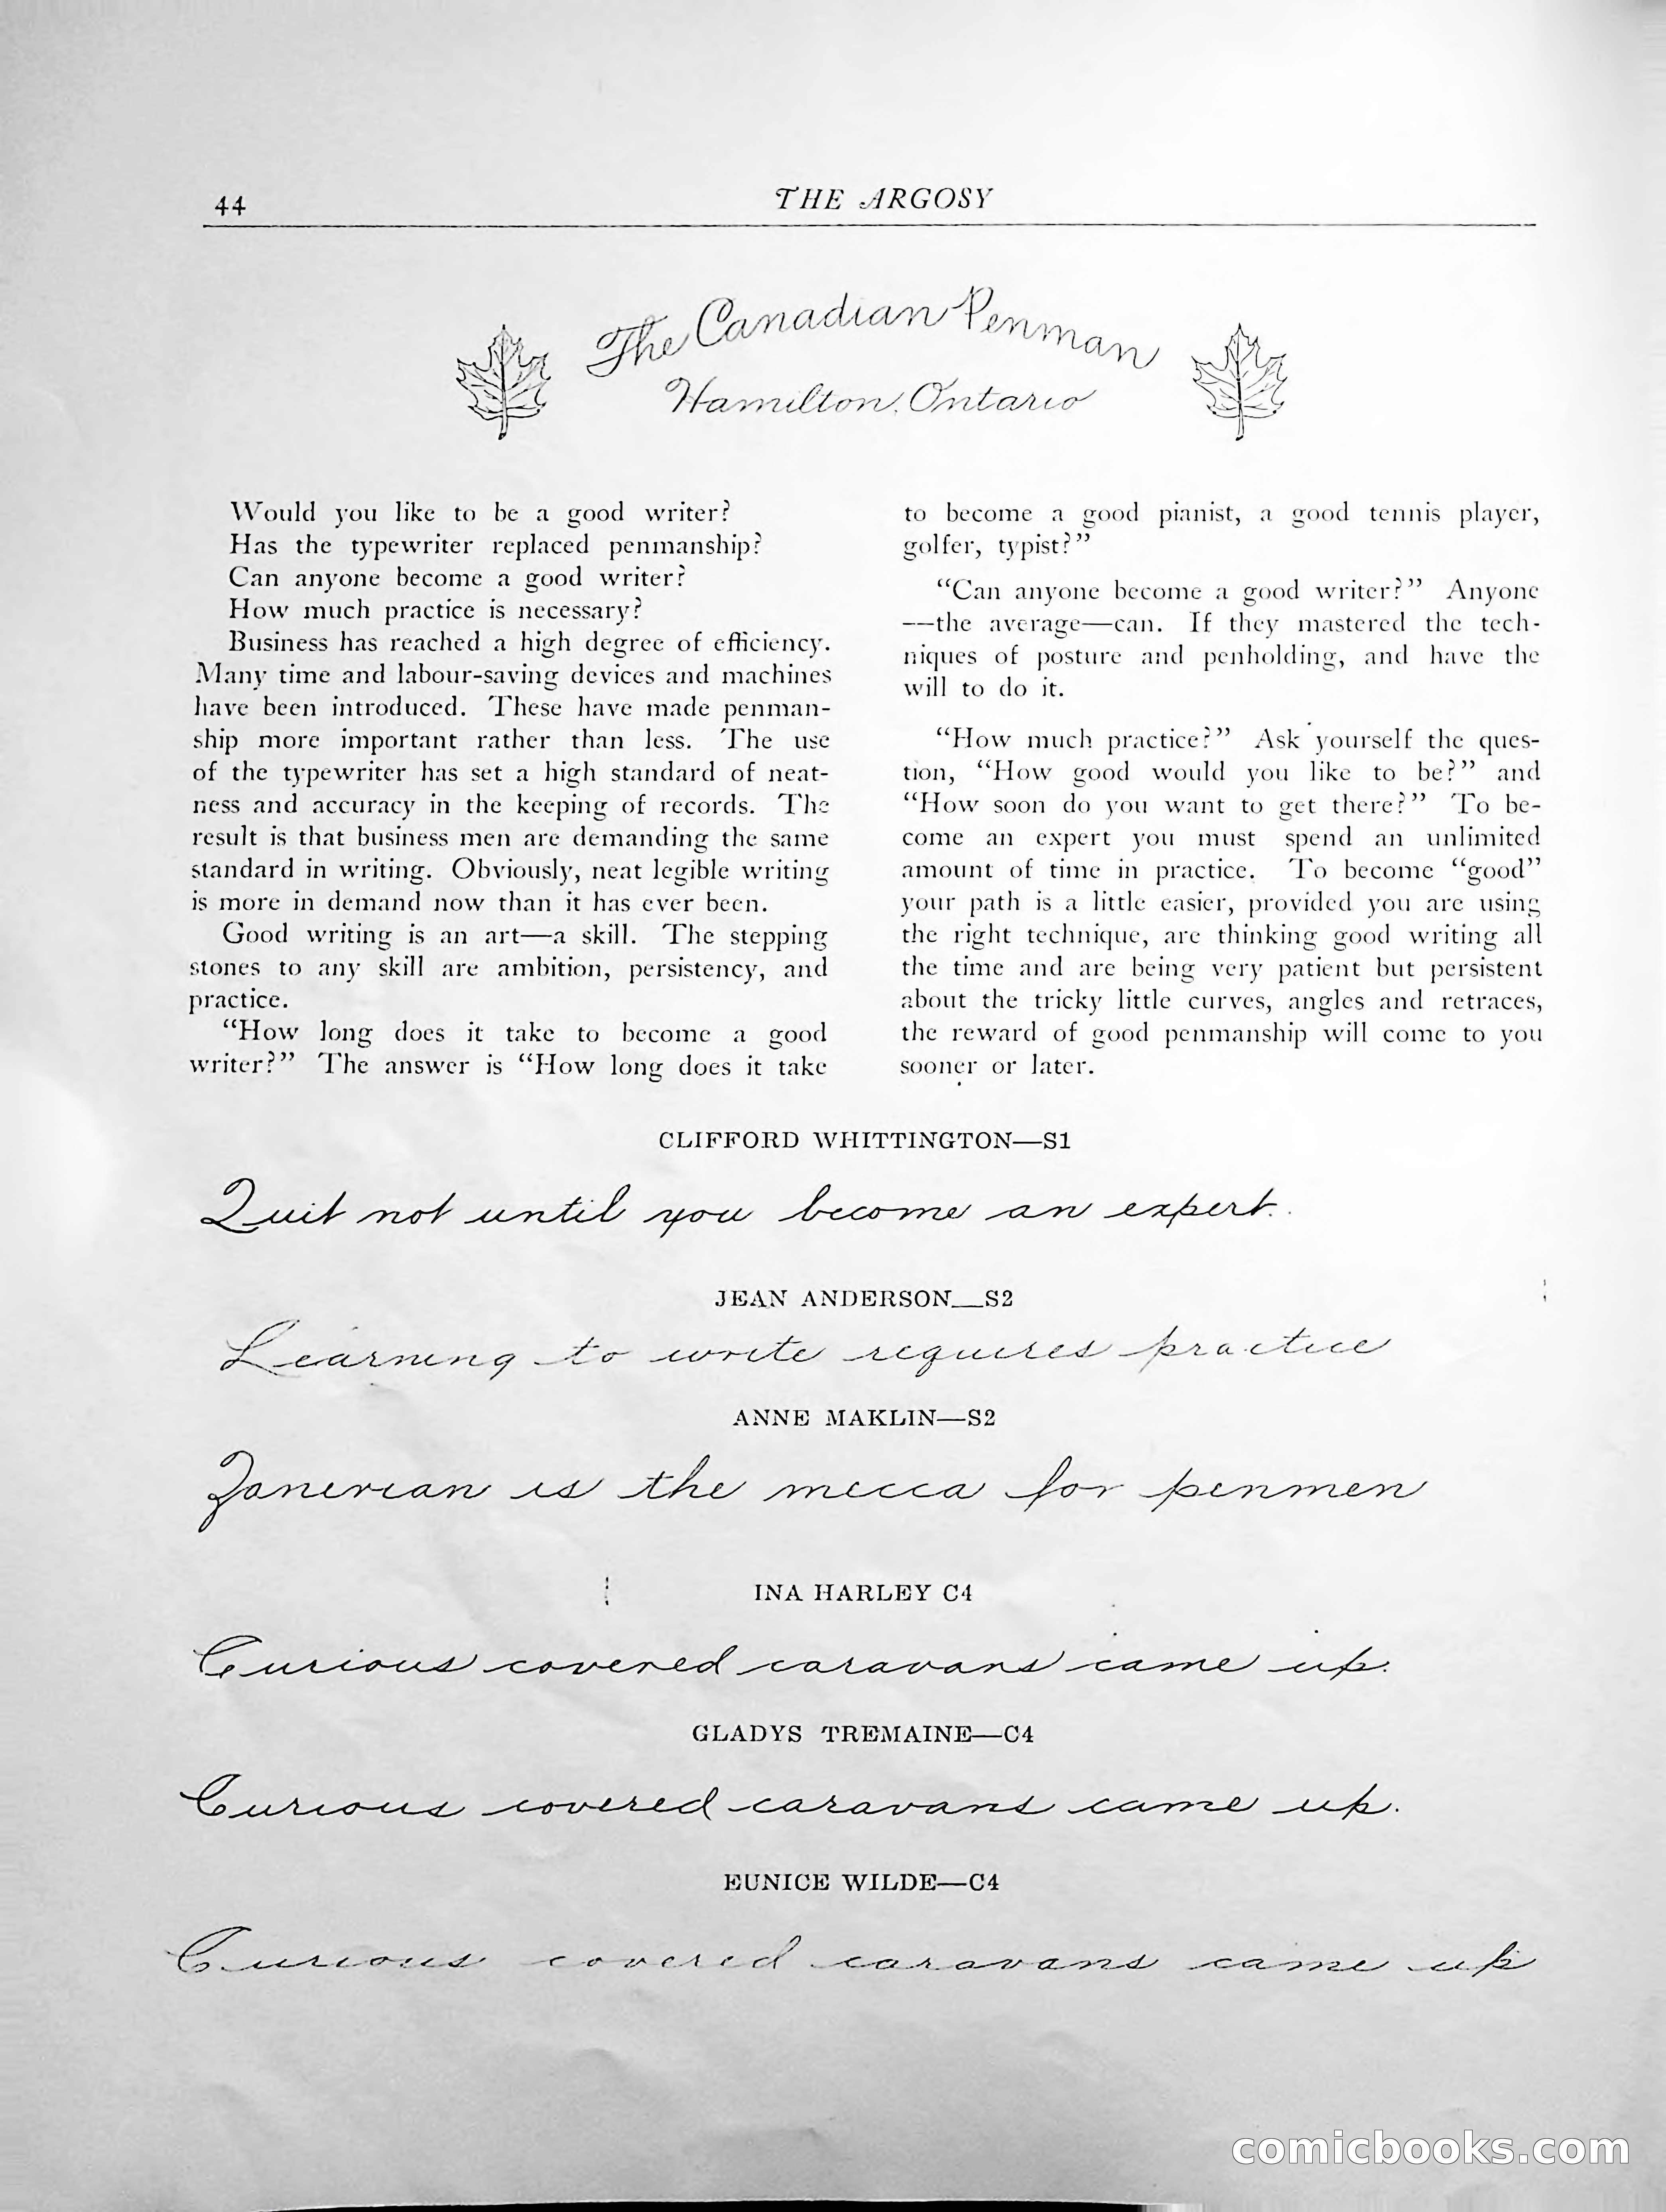 44
THE ARGOSY
The Canadian Penman
Hamilton, Ontario
Would you like to be a good writer?
Has the typewriter replaced penmanship?
Can anyone become a good writer?
How much practice is necessary?
Business has reached a high degree of efficiency.
Many time and labour-saving devices and machines
have been introduced. These have made penman-
ship more important rather than less. The use
of the typewriter has set a high standard of neat-
ness and accuracy in the keeping of records. The
result is that business men are demanding the same
standard in writing. Obviously, neat legible writing
is more in demand now than it has ever been.
Good writing is an art—a skill. The stepping
stones to any skill are ambition, persistency, and
practice.
“How long does it take to become a good
writer?” The answer is “How long does it take
to become a good pianist, a good tennis player,
golfer, typist?”
“Can anyone become a good writer?” Anyone
—the average—can. If they mastered the tech-
niques of posture and penholding, and have the
will to do it.
“How much practice?” Ask yourself the ques-
tion, “How good would you like to be?” and
“How soon do you want to get there?” To be-
come an expert you must spend an unlimited
amount of time in practice. To become “good”
your path is a little easier, provided you are using
the right technique, are thinking good writing all
the time and are being very patient but persistent
about the tricky little curves, angles and retraces,
the reward of good penmanship will come to you
sooner or later.
CLIFFORD WHITTINGTON—S1
Quit not until you become an expert.
JEAN ANDERSON—S2
Learning to write requires practice
ANNE MAKLIN—S2
Zanerian is the mecca for penmen
INA HARLEY C4
Curious covered caravans came up.
GLADYS TREMAINE—C4
Curious covered caravans came up.
EUNICE WILDE—C4
Curious covered caravans came up
comicbooks.com